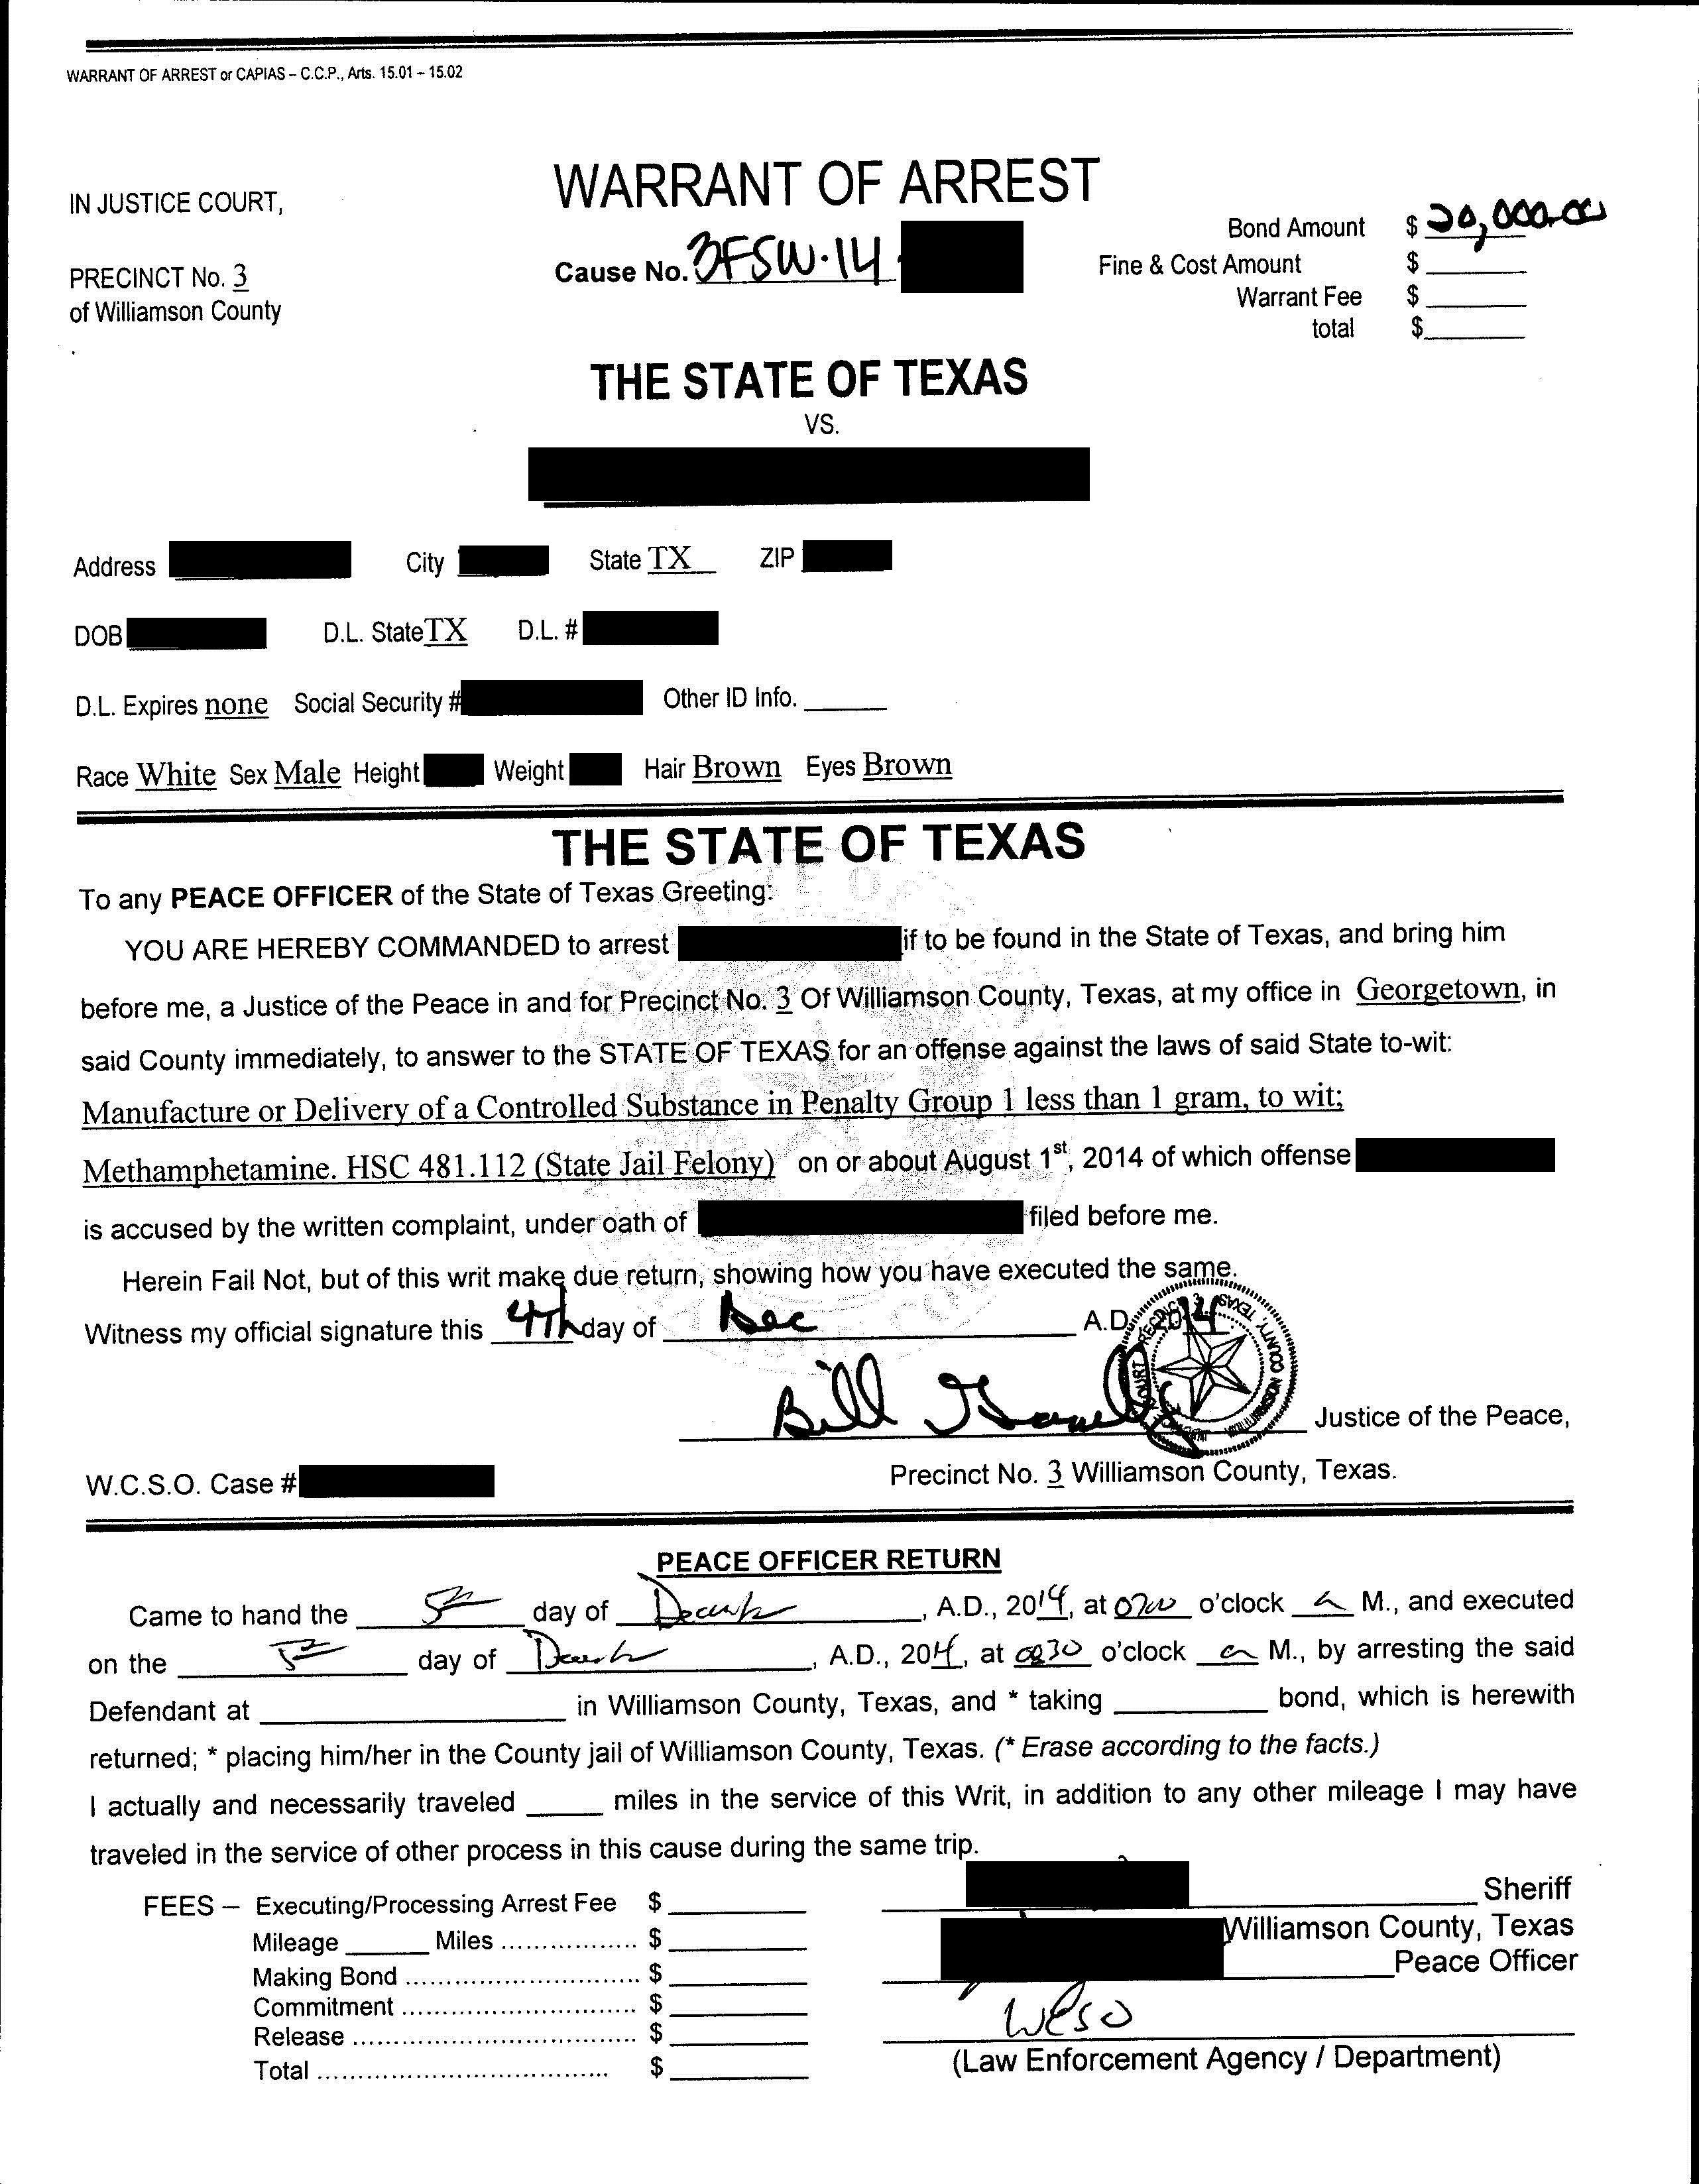 WARRANT OF ARREST or CAPIAS – C.C.P., Arts. 15.01 – 15.02
WARRANT OF ARREST
IN JUSTICE COURT,
Cause No. 3FSW-14
Bond Amount $ 20,000.00
PRECINCT No. 3
Fine & Cost Amount $
of Williamson County
Warrant Fee $
total $
THE STATE OF TEXAS
VS.
Address City State TX ZIP
DOB D.L. State TX D.L. #
D.L. Expires none Social Security # Other ID Info.
Race White Sex Male Height Weight Hair Brown Eyes Brown
THE STATE OF TEXAS
To any PEACE OFFICER of the State of Texas Greeting:
YOU ARE HEREBY COMMANDED to arrest if to be found in the State of Texas, and bring him
before me, a Justice of the Peace in and for Precinct No. 3 Of Williamson County, Texas, at my office in Georgetown, in
said County immediately, to answer to the STATE OF TEXAS for an offense against the laws of said State to-wit:
Manufacture or Delivery of a Controlled Substance in Penalty Group 1 less than 1 gram, to wit;
Methamphetamine. HSC 481.112 (State Jail Felony) on or about August 1st, 2014 of which offense
is accused by the written complaint, under oath of filed before me.
Herein Fail Not, but of this writ make due return, showing how you have executed the same.
Witness my official signature this 4Th day of Dec A.D. 2014
Bill
Justice of the Peace,
W.C.S.O. Case #
Precinct No. 3 Williamson County, Texas.
PEACE OFFICER RETURN
Came to hand the 5th day of December, A.D., 2014, at 0700 o'clock A M., and executed
on the 5th day of December, A.D., 2014, at 0830 o'clock a M., by arresting the said
Defendant at in Williamson County, Texas, and * taking bond, which is herewith
returned; * placing him/her in the County jail of Williamson County, Texas. (* Erase according to the facts.)
I actually and necessarily traveled miles in the service of this Writ, in addition to any other mileage I may have
traveled in the service of other process in this cause during the same trip.
Sheriff
FEES – Executing/Processing Arrest Fee $
Williamson County, Texas
Mileage Miles ................. $
Peace Officer
Making Bond ............................. $
Commitment ............................. $
WCSO
Release ................................... $
(Law Enforcement Agency / Department)
Total .................................... $